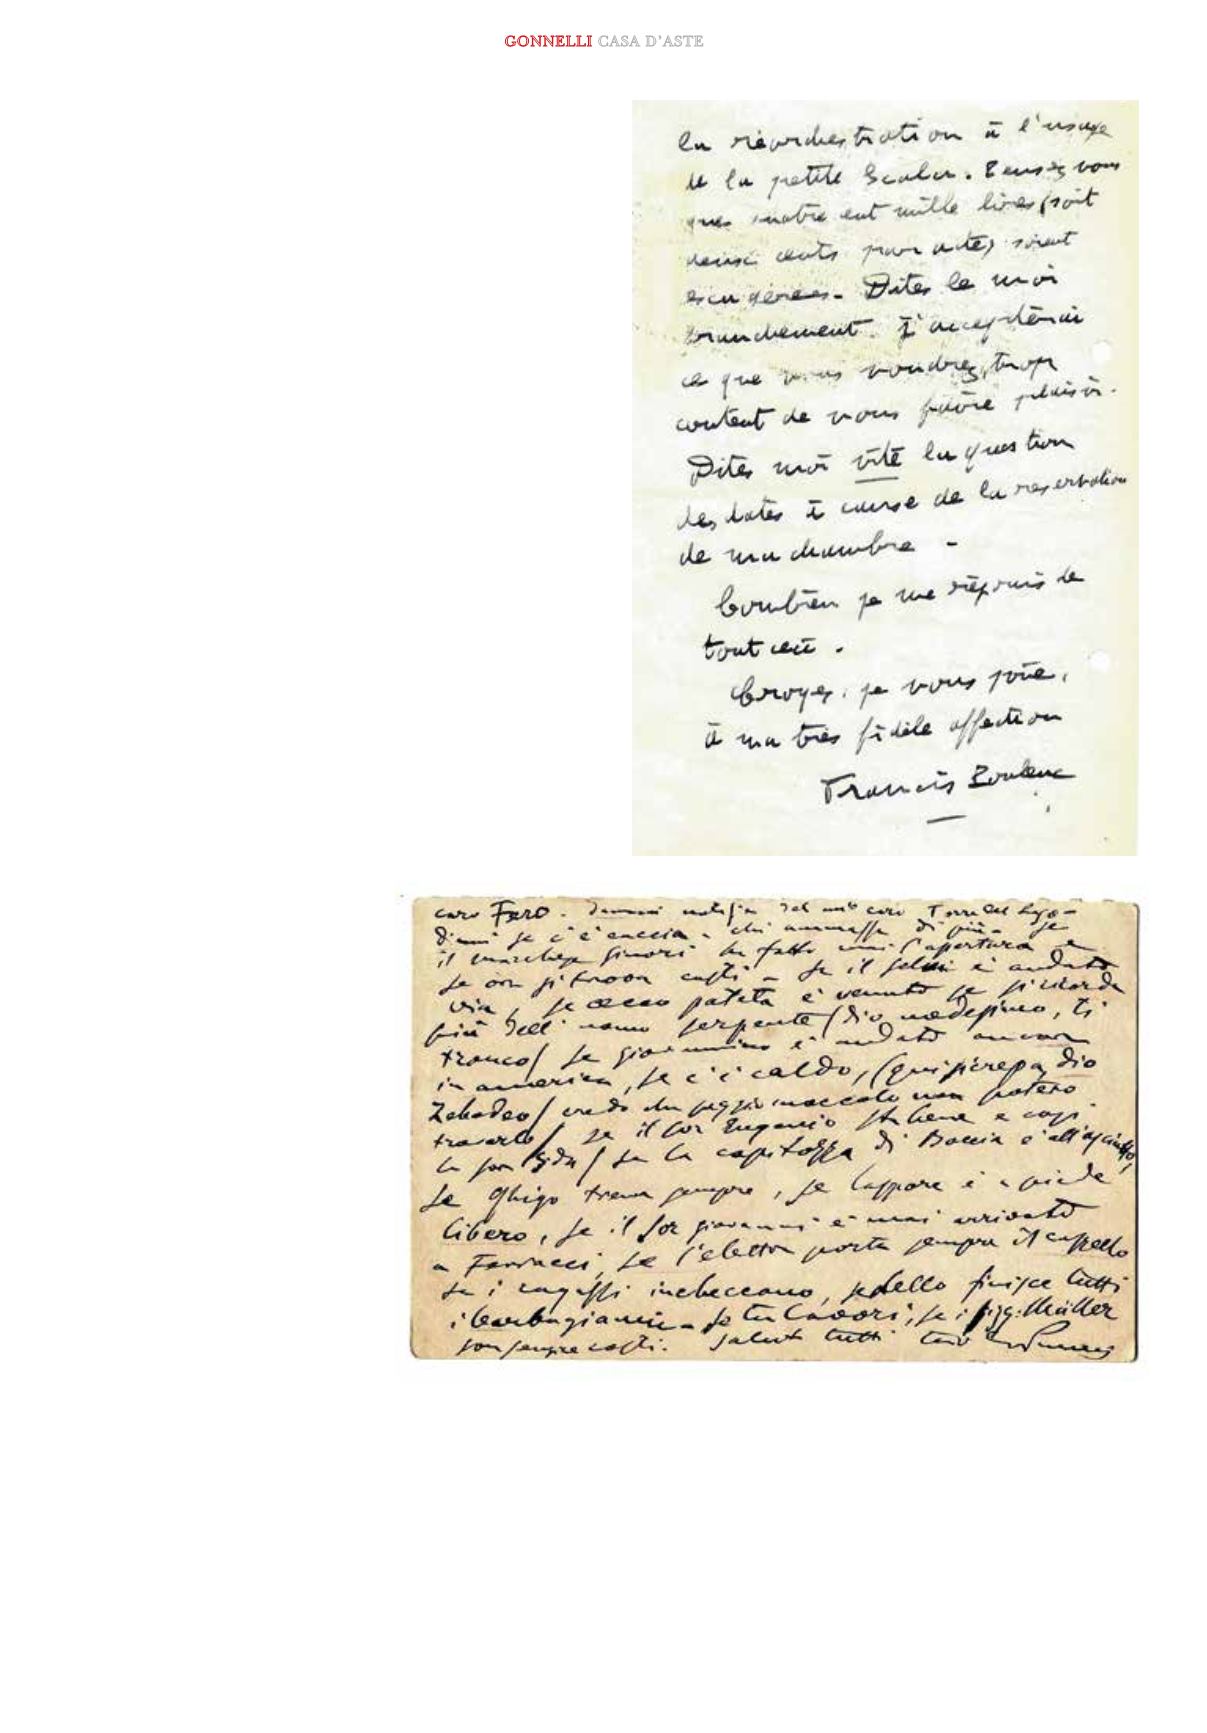 GONNELLI CASA D'ASTE
la réorchestration à l'usage
de la petite Scala. Pensez vous
que quatre cent mille lires (soit
deux cents par acte) soient
exagérées. Dites le moi
franchement. J'accepterai
ce que vous voudrez, trop
content de vous faire plaisir.
Dites moi vite la question
des dates à cause de la réservation
de ma chambre -
Combien je me réjouis de
tout ceci.
Croyez, je vous prie,
à ma très fidèle affection
Francis Poulenc
caro Fero. Dammi notizia del mio caro Torre del Lago -
dimmi se c'è caccia - chi ammazza di più - se
il marchese Ginori ha fatto l'apertura e
se ora si trova costì - se il è andato
via, se cecco patata è venuto se si ricorda
più dell' uomo serpente (dio ti
stronco) se giovannino è andato ancora
in america, se c'è caldo, (qui si crepa, dio
Zebedeo) credo che peggio moccolo non potevo
trovarlo) se il sor Eugenio sta bene e così
la sora se la capitozza di Boccia è all'asciutto,
se Ghigo trema sempre, se Lappore è a piede
libero, se il sor giovanni è mai arrivato
a Farnocci, se l'elettor porta sempre il cappello
se i ragazzi imbeccano, se dello finisce tutti
i barbagianni - se tu lavori, se i sigg. Müller
son sempre costì. Saluta tutti tuo